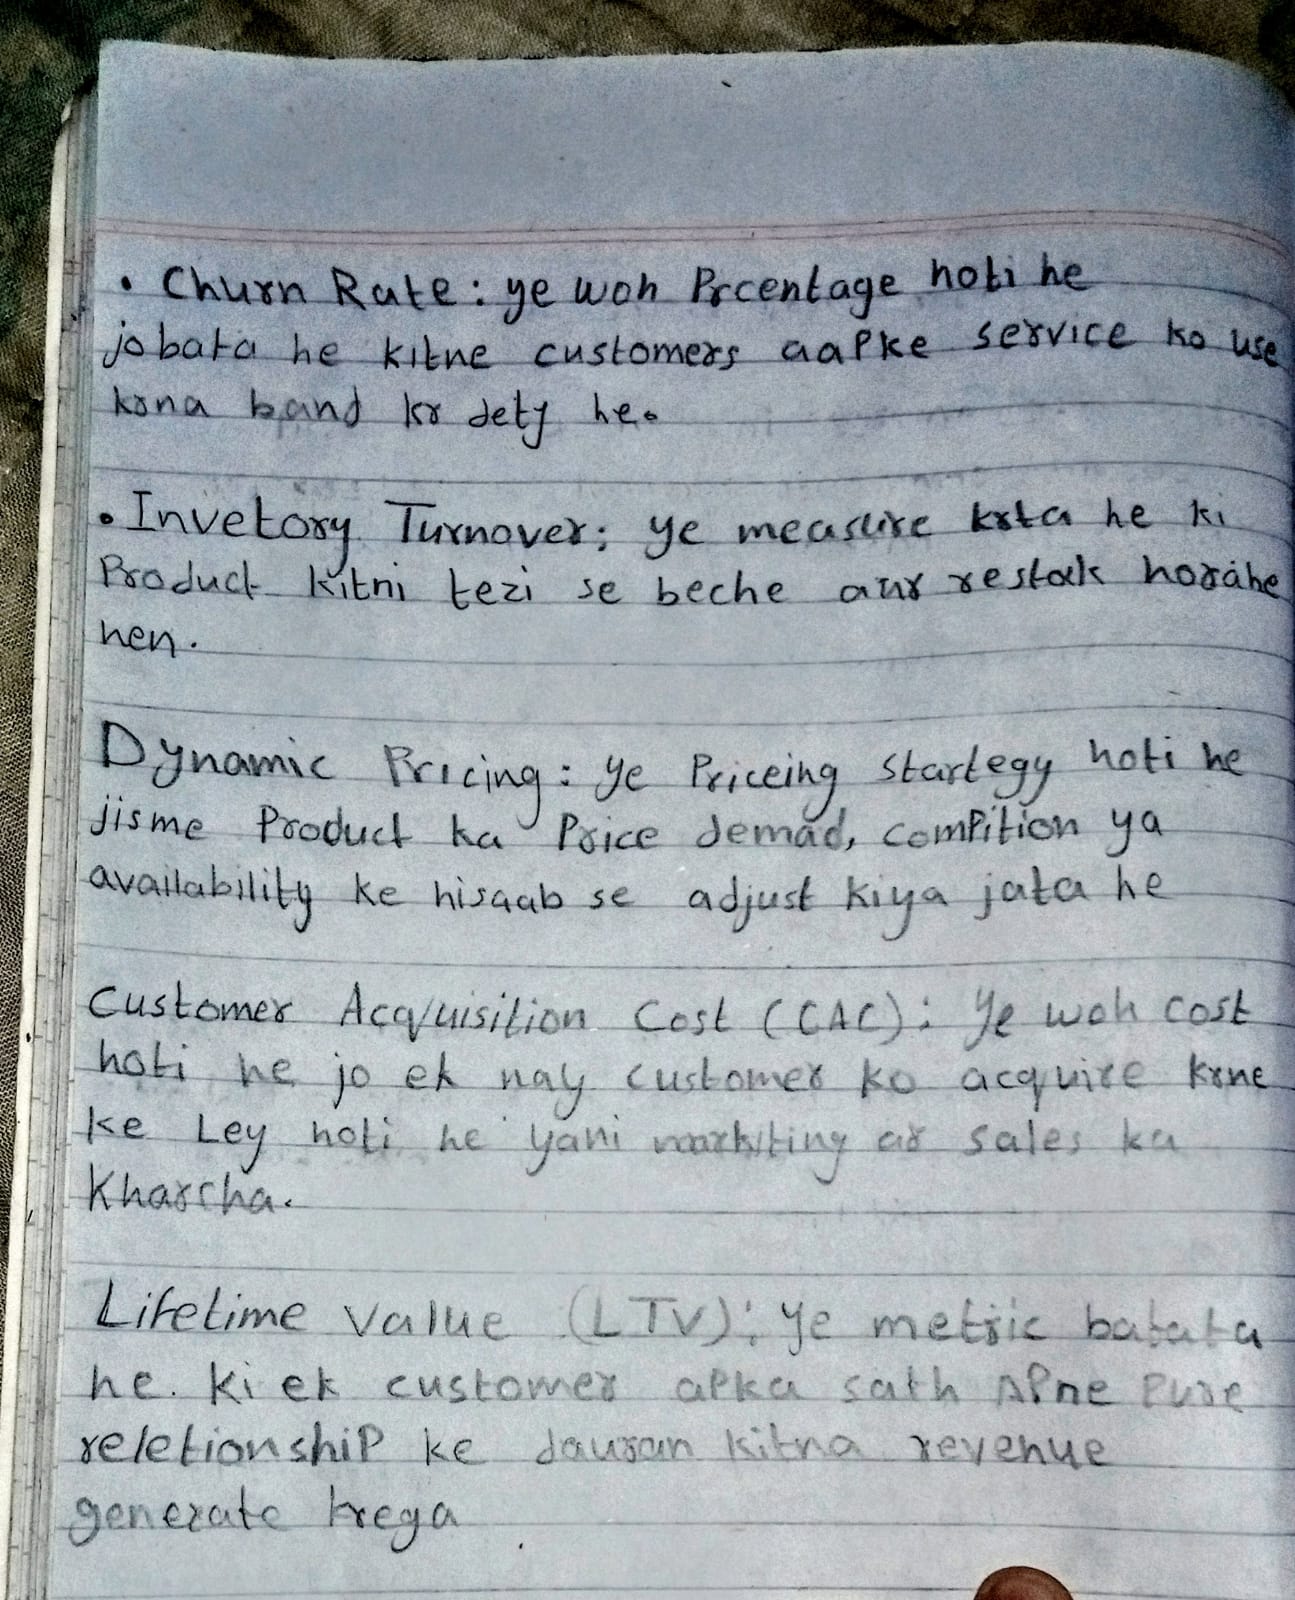 • Churn Rate: ye woh Prcentage hoti he
jo bata he kitne customers aapke service ko use
krna band kr dety he.
• Invetory Turnover; ye measure krta he ki
Product kitni tezi se beche aur restok horahe
hen.
Dynamic Pricing: ye Priceing startegy hoti he
jisme Product ka Price demad, compition ya
availability ke hisaab se adjust kiya jata he
Customer Acquisition Cost (CAC): Ye woh cost
hoti he jo ek nay customer ko acquire krne
ke Ley hoti he yani markiting ar sales ka
Kharcha.
Lifetime Value (LTV): ye metric batata
he. ki ek customer apka sath Apne Pure
reletionship ke dauran kitna revenue
generate krega